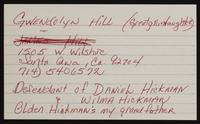 Gwendolyn Hill (Granddaughter)
1505 W. Wilshire
Santa Ana, Ca. 92704
714) 5406572
Descendant of Daniel Hickman
& Wilma Hickman
Olden Hickman's my grand father